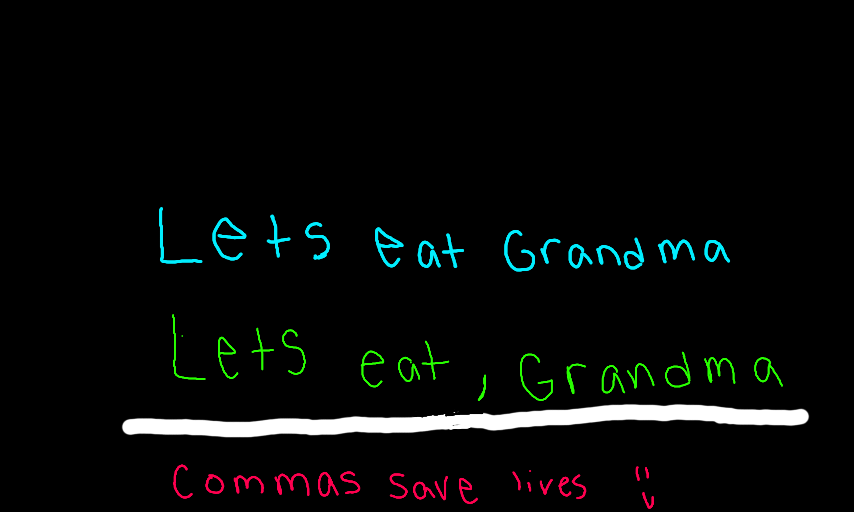 Lets eat Grandma
Lets eat, Grandma
Commas save lives :)